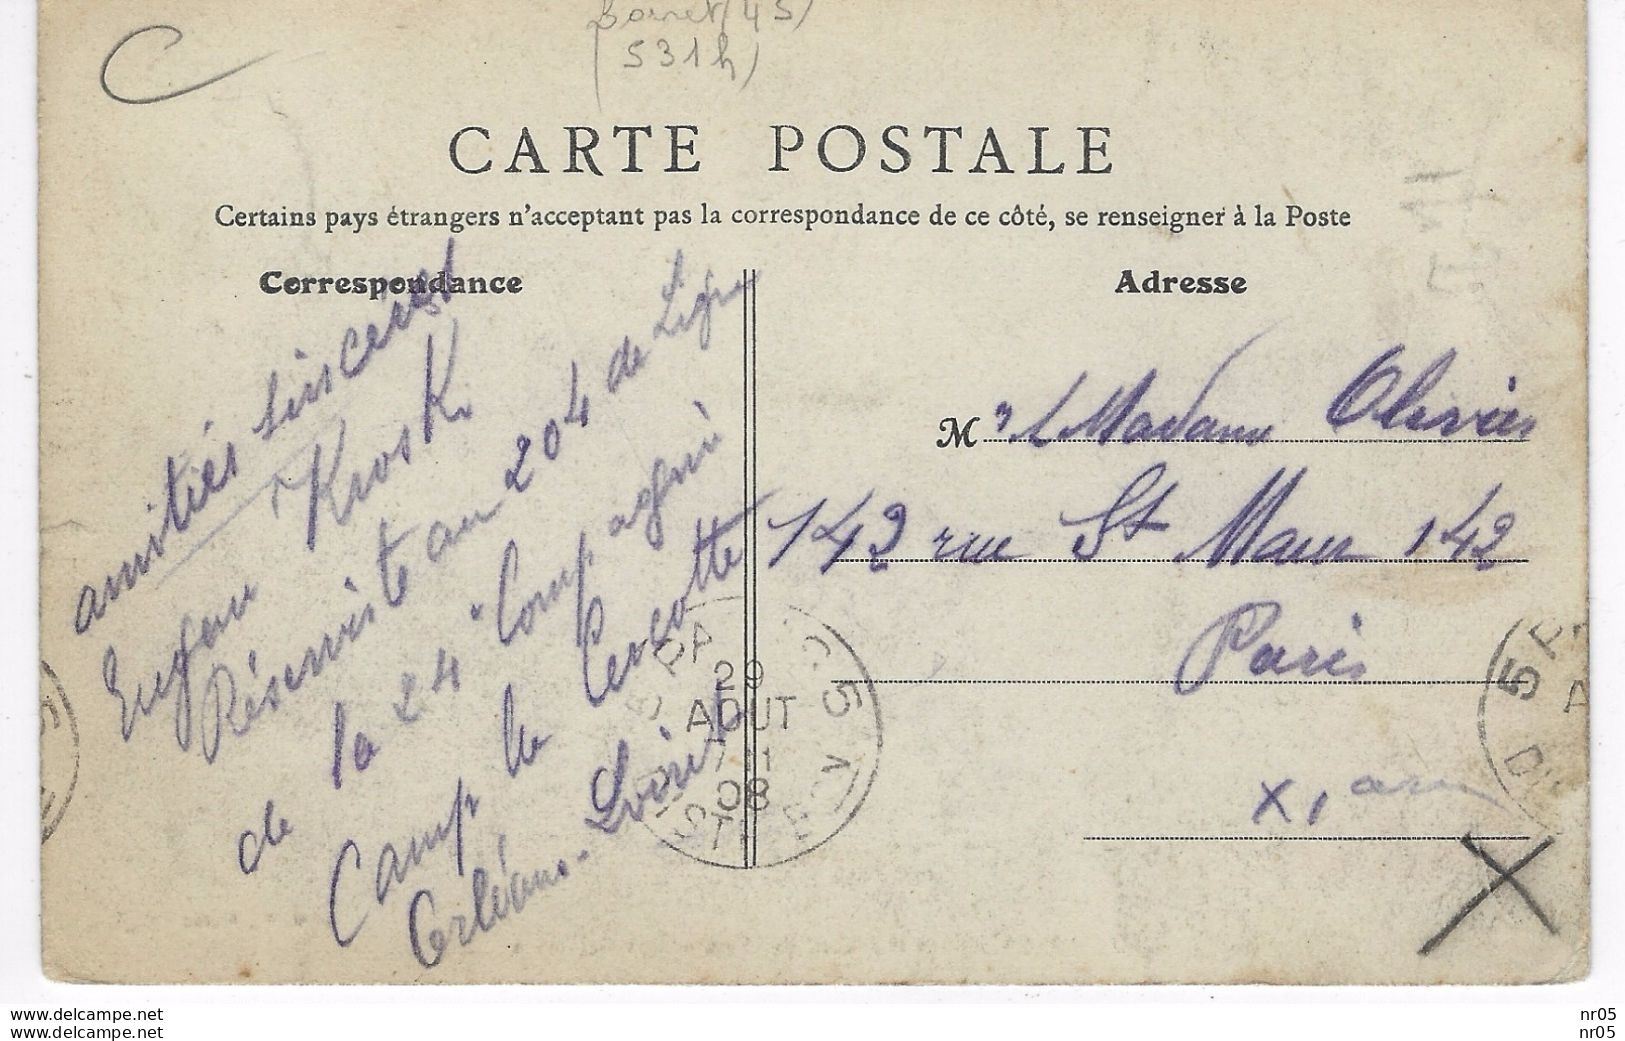 (45)
(531h)
CARTE POSTALE
Certains pays étrangers n'acceptant pas la correspondance de ce côté, se renseigner à la Poste
Correspondance
Adresse
amitiés sincères
Eugene Kiosk
Réserviste au 204 de Ligne
de la 24e Compagnie
Camp de Cercotte
Orléans - Loiret
M Madame Olivier
142 rue St Maur 142
Paris
XI
PA
29
AOUT
08
5
DIST
www.delcampe.net
www.delcampe.net
nr05
nr05